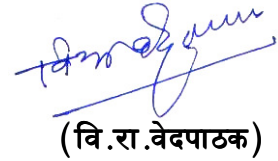 (वि.रा.वेदपाठक)